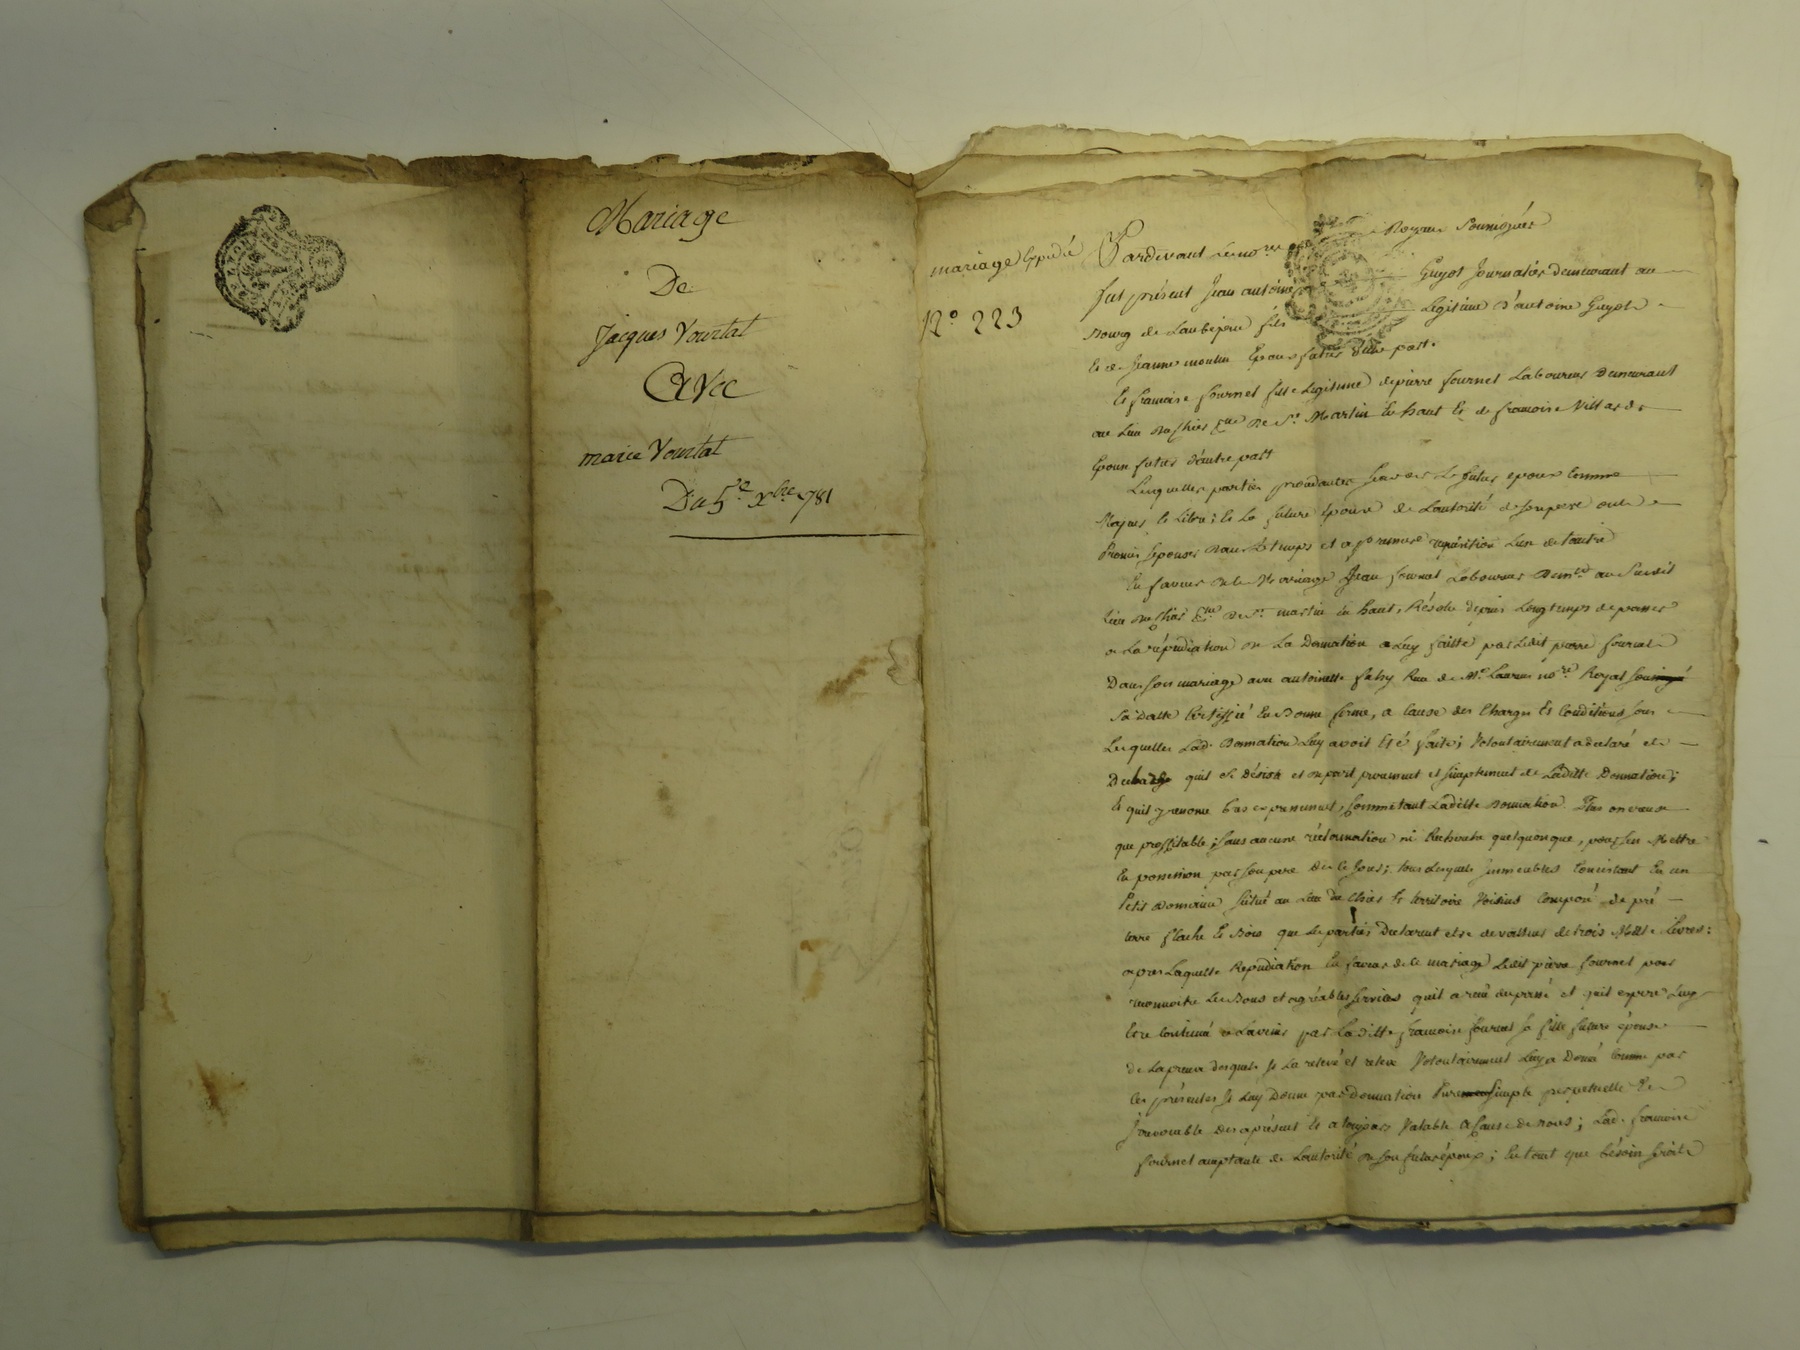 Mariage
De
Jacques Vourlat
Avec
marie Vourlat
Du 5e Xbre 781
mariage Expedié
N° 223
Pardevant Le nore Royaux Soussignés
fut présent Jean antoine Guyot Journalier demeurant au
Bourg de Laubépin fils Legitime d'antoine Guyot
Et de Jeanne moulin Epoux futur d'une part.
Et francoise fournel fille Legitime de pierre fournel Laboureur Demeurant
au Lieu du Chier De St. Martin En haut Et de francoise Villard
Epouse future d'autre part
Lesquelles parties procedantes sçavoir Le futur epoux Comme
Majeur Et Libre; Et La future Epouse de Lautorité de son pere ont
Promis sepouser Dans Le temps et a premiere requisition L'un de l'autre
En faveur de Ce Mariage Jean fournel Laboureur Demt au Susdit
Lieu du Chier de St martin en haut, Résolu depuis Longtemps de passer
a La répudiation de La Donnation a Luy faitte par Ledit pierre fournel
Dans son mariage avec antoinette Reçu de Me. Nore Royal
Sa Datte En Bonne forme, a Cause des Charges Et Conditions sous
Lesquelles Lad. Donnation Luy avoit Eté faite; Volontairement a declaré et
quil se désiste et départ purement et simplement de Laditte Donnation;
Et quil y renonce Expressement, Laditte Donnation Plus onereuse
que proffitable; sans aucune réclamation ni quelquonque, pour s'en Mettre
En possession par son pere dès Ce Jour; tous Lesquels immeubles Consistant En un
Petit Domaine situé au Lieu du Chier Et territoire Voisins Composé de pré
terre Et Bois que Les parties Declarent etre de valleur de trois Mille Livres:
apres Laquelle Repudiation En faveur de Ce mariage Ledit pierre fournel pour
reconnoitre Les Bons et agréables services quil a reçu du passé et quil espere Luy
Etre Continué a L'avenir par Laditte francoise fournel sa fille future épouse
de La preuve desquels il La relevé et releve Volontairement Luy a Donné Comme par
Ces présentes il Luy Donne par donnation Pure simple perpetuelle Et
Irrevocable des apresent Et a toujours Valable a Cause de noces; Lad. francoise
fournel acceptante de L'autorité de son futur époux; En tout que bésoin seroit